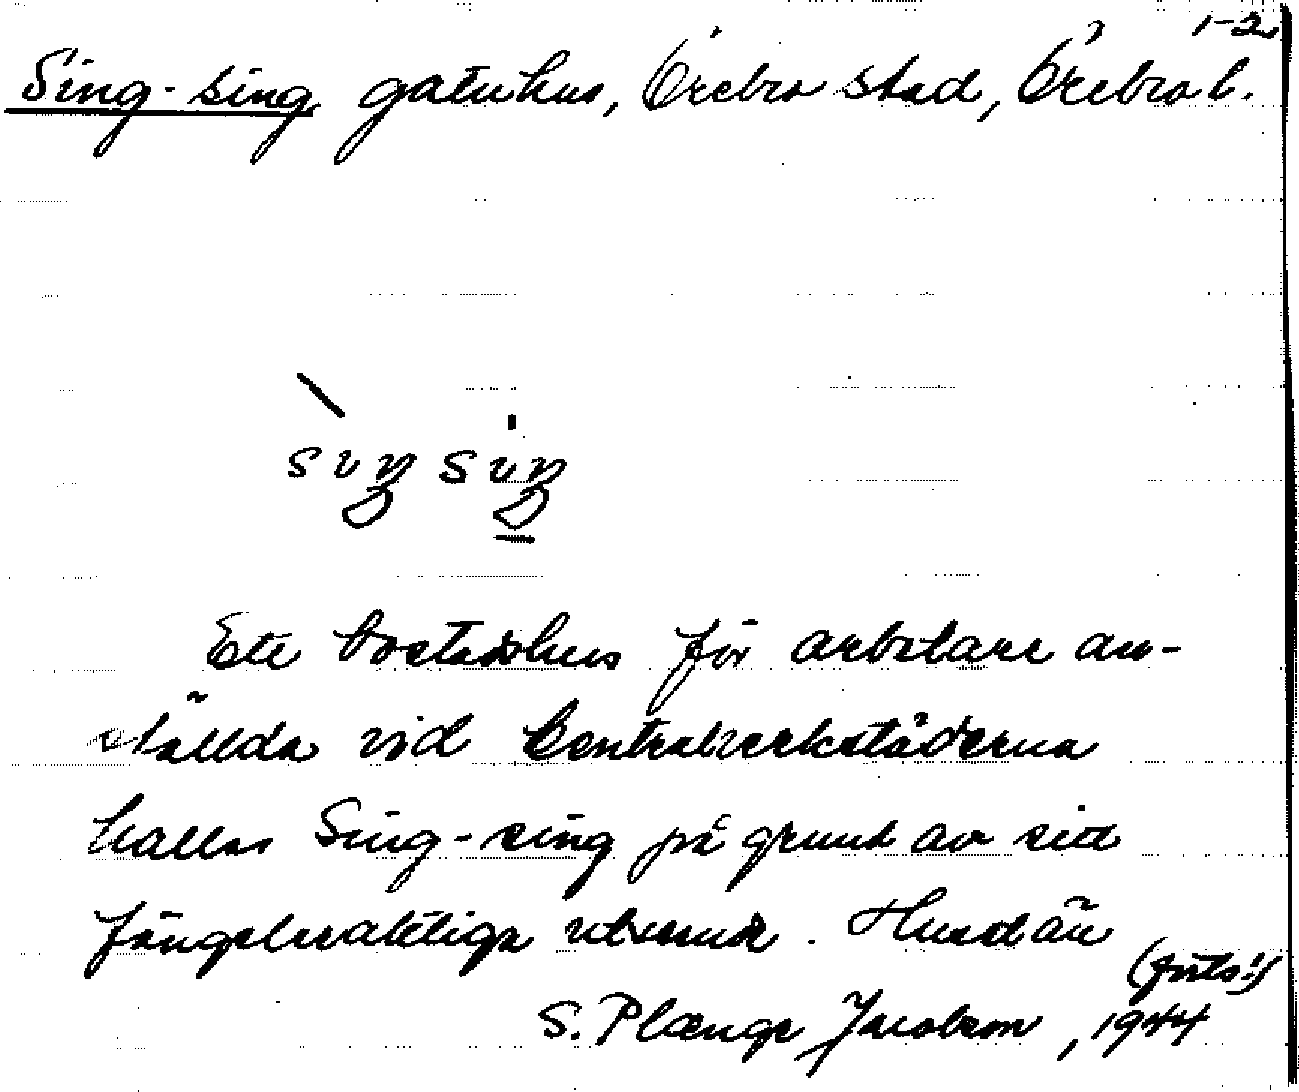 1-2
Sing-sing gatuhus, Örebro stad, Örebro l.
sıŋ sıŋ
Ett bostadshus för arbetare an-
ställda vid Centralverkstäderna
kallas Sing-sing på grund av sitt
fängelseaktiga utseende. Huset är
(forts!)
S. Plænge Jacobson, 1944